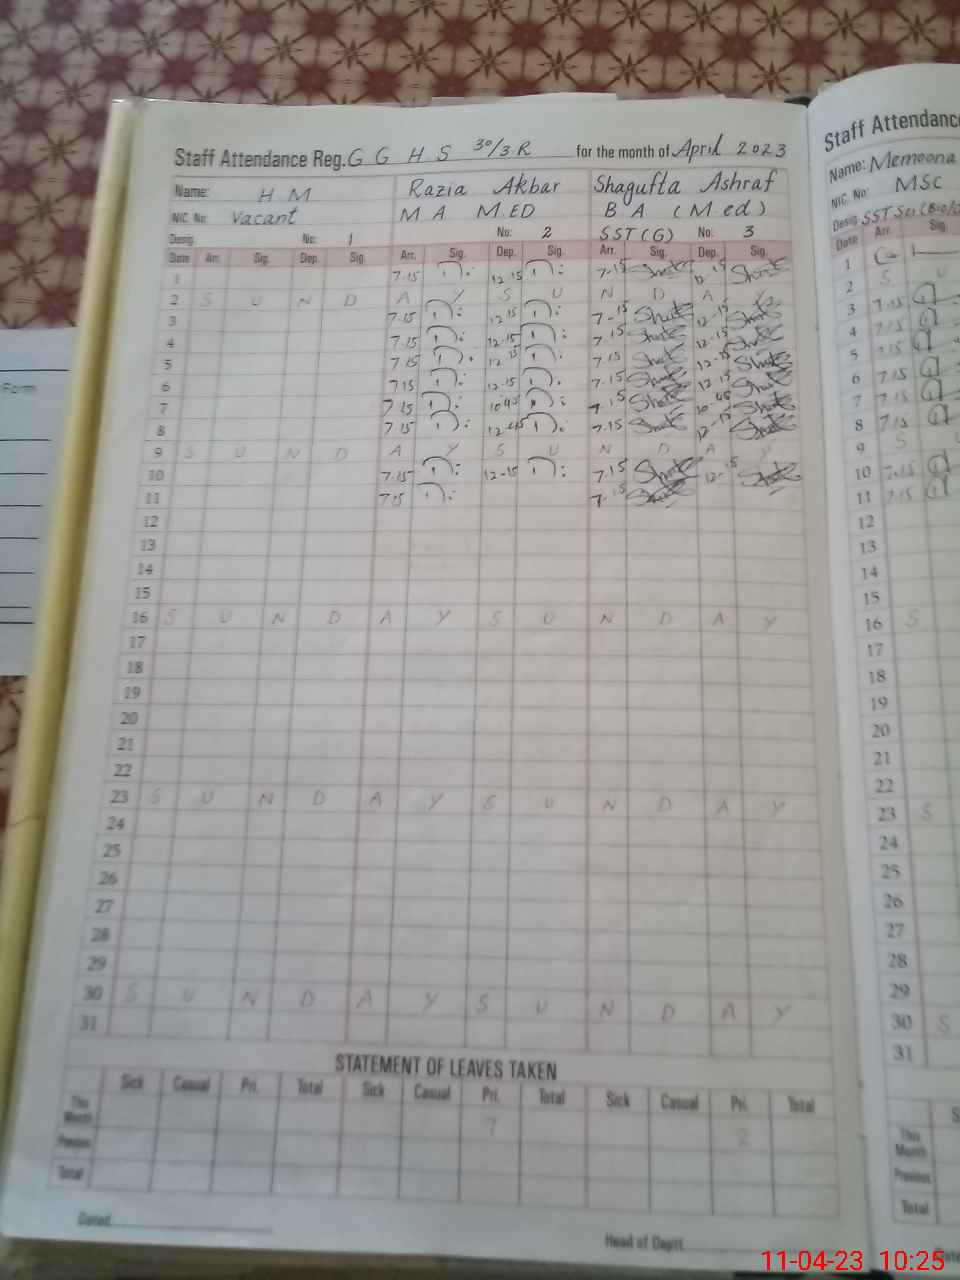 Staff Attendance Reg. G G H S 30/3.R for the month of April 2023
Name: H M Razia Akbar Shagufta Ashraf
NIC. No: Vacant M A M.ED B A (M.ed)
Desig. No: 1 No: 2 SST(G) No: 3
Date Arr. Sig. Dep. Sig. Arr. Sig. Dep. Sig. Arr. Sig. Dep. Sig.
1 7.15 12.15 7-15 12-15
2 S U N D A Y S U N D A Y
3 7.15 12.15 7-15 12-15
4 7.15 12.15 7.15 12.15
5 7.15 12.15 7.15 12-15
6 7.15 12.15 7.15 12.15
7 7.15 10.45 7.15 10-45
8 7.15 7.15 12-15
9 S U N D A Y S U N D A Y
10 7.15 12-15 7.15 12-15
11 7.15 7.15
12
13
14
15
16 S U N D A Y S U N D A Y
17
18
19
20
21
22
23 S U N D A Y S U N D A Y
24
25
26
27
28
29
30 S U N D A Y S U N D A Y
31
STATEMENT OF LEAVES TAKEN
Sick Casual Pri. Total Sick Casual Pri. Total Sick Casual Pri. Total
This Month 7 2
Previous
Total
Dated
Head of Deptt.
Form
Staff Attendance
Name: Memoona
NIC. No: MSc
Desig. SST Sci (Bio/
Date Arr. Sig.
1
2 S U
3 7.15
4 7.15
5 7.15
6 7.15
7 7.15
8 7.15
9 S U
10 7.15
11 7.15
12
13
14
15
16 S
17
18
19
20
21
22
23 S
24
25
26
27
28
29
30 S
31
This Month
Previous
Total
11-04-23 10:25